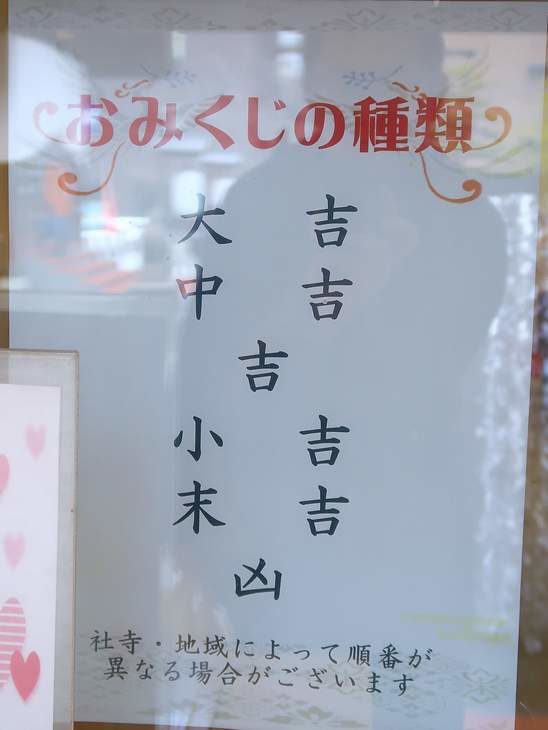 おみくじの種類
大吉
中吉
吉
小吉
末吉
凶
社寺・地域によって順番が
異なる場合がございます